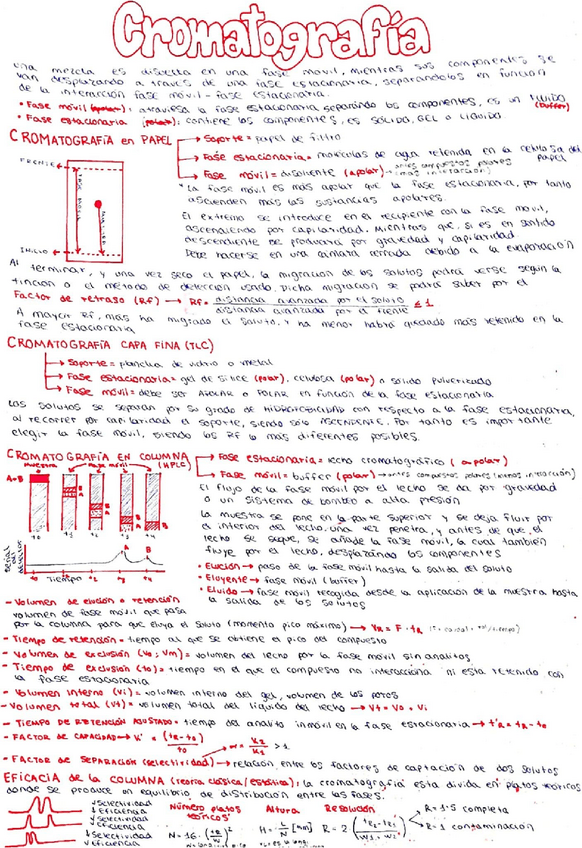 Cromatografía
Una mezcla es disuelta en una fase móvil, mientras sus componentes se
van desplazando a través de una fase estacionaria, separándolos en función
de la interacción fase móvil - fase estacionaria.
• Fase móvil : atraviesa la fase estacionaria separando los componentes, es un líquido (buffer)
• Fase estacionaria : contiene los componentes, es SÓLIDA, GEL o LÍQUIDA.
CROMATOGRAFÍA en PAPEL
Soporte = papel de filtro
Fase estacionaria = moléculas de agua retenida en la celulosa del papel
Fase móvil = disolvente (apolar) → antes compuestos polares (mas interacción)
FRENTE
INICIO
*La fase móvil es más apolar que la fase estacionaria, por tanto
ascienden más las sustancias apolares.
El extremo se introduce en el recipiente con la fase móvil,
ascendiendo por capilaridad. Mientras que, si es en sentido
descendiente se producirá por gravedad y capilaridad
Debe hacerse en una cámara cerrada debido a la evaporación
Al terminar, y una vez seco el papel, la migración de los solutos podrá verse según la
tinción o el método de detección usado. Dicha migración se podrá saber por el
Factor de retraso (Rf) → Rf = distancia avanzada por el soluto / distancia avanzada por el frente ≤ 1
A mayor Rf, más ha migrado el soluto, y ha menor habrá quedado más retenido en la
fase estacionaria
CROMATOGRAFÍA CAPA FINA (TLC)
Soporte = plancha de vidrio o metal
Fase estacionaria = gel de sílice (polar), celulosa (polar) o sólido pulverizado
Fase móvil = debe ser APOLAR o POLAR en función de la fase estacionaria
Los solutos se separan por su grado de HIDROFOBICIDAD con respecto a la fase estacionaria,
al recorrer por capilaridad el soporte, siendo sólo ASCENDENTE. Por tanto es importante
elegir la fase móvil, siendo los Rf lo más diferentes posibles.
CROMATOGRAFÍA EN COLUMNA (HPLC)
Fase estacionaria = lecho cromatográfico (apolar)
Fase móvil = buffer (polar) → antes compuestos polares (menos interacción)
muestra
Fase móvil
A+B
A
B
t0 t1 t2 t3 t4
Señal del detector
A B
t0 Tiempo t2 t3 t4
El flujo de la fase móvil por el lecho se da por gravedad
o un sistema de bombeo a alta presión
La muestra se pone en la parte superior y se deja fluir por
el interior del lecho. Una vez penetra, y antes de que el
lecho se seque, se añade la fase móvil, la cual también
fluye por el lecho, desplazando los componentes
• Elución → paso de la fase móvil hasta la salida del soluto
• Eluyente → fase móvil (buffer)
• Eluido → fase móvil recogida desde la aplicación de la muestra hasta
la salida de los solutos
- Volumen de elución o retención
volumen de fase móvil que pasa
por la columna para que eluya el soluto (momento pico máximo) → VR = F · tR
- Tiempo de retención = tiempo al que se obtiene el pico del compuesto
- Volumen de exclusión (Vo; Vm) = volumen del lecho por la fase móvil sin analitos
- Tiempo de exclusión (to) = tiempo en el que el compuesto no interacciona ni esta retenido con
la fase estacionaria
- Volumen interno (Vi) = volumen interno del gel, volumen de los poros
- Volumen total (Vt) = volumen total del líquido del lecho → Vt = Vo + Vi
- TIEMPO DE RETENCIÓN AJUSTADO = tiempo del analito inmóvil en la fase estacionaria → t'R = tR - to
- FACTOR DE CAPACIDAD → K' = (tR - to) / to
α = K2 / K1 > 1
- FACTOR DE SEPARACIÓN (selectividad) → relación entre los factores de captación de dos solutos
EFICACIA de la COLUMNA (teoría clásica/estática): la cromatografía esta divida en platos teóricos
donde se produce un equilibrio de distribución entre las fases.
↓ Selectividad
↑ Eficiencia
↓ Eficiencia
↓ Selectividad
↓ Eficiencia
Número platos teóricos
N = 16 · (tR / W)²
Altura
H = / N [mm]
Resolución
R = 2 (tR2 - tR1 / W1 + W2)
R = 1.5 completa
R = 1 contaminación